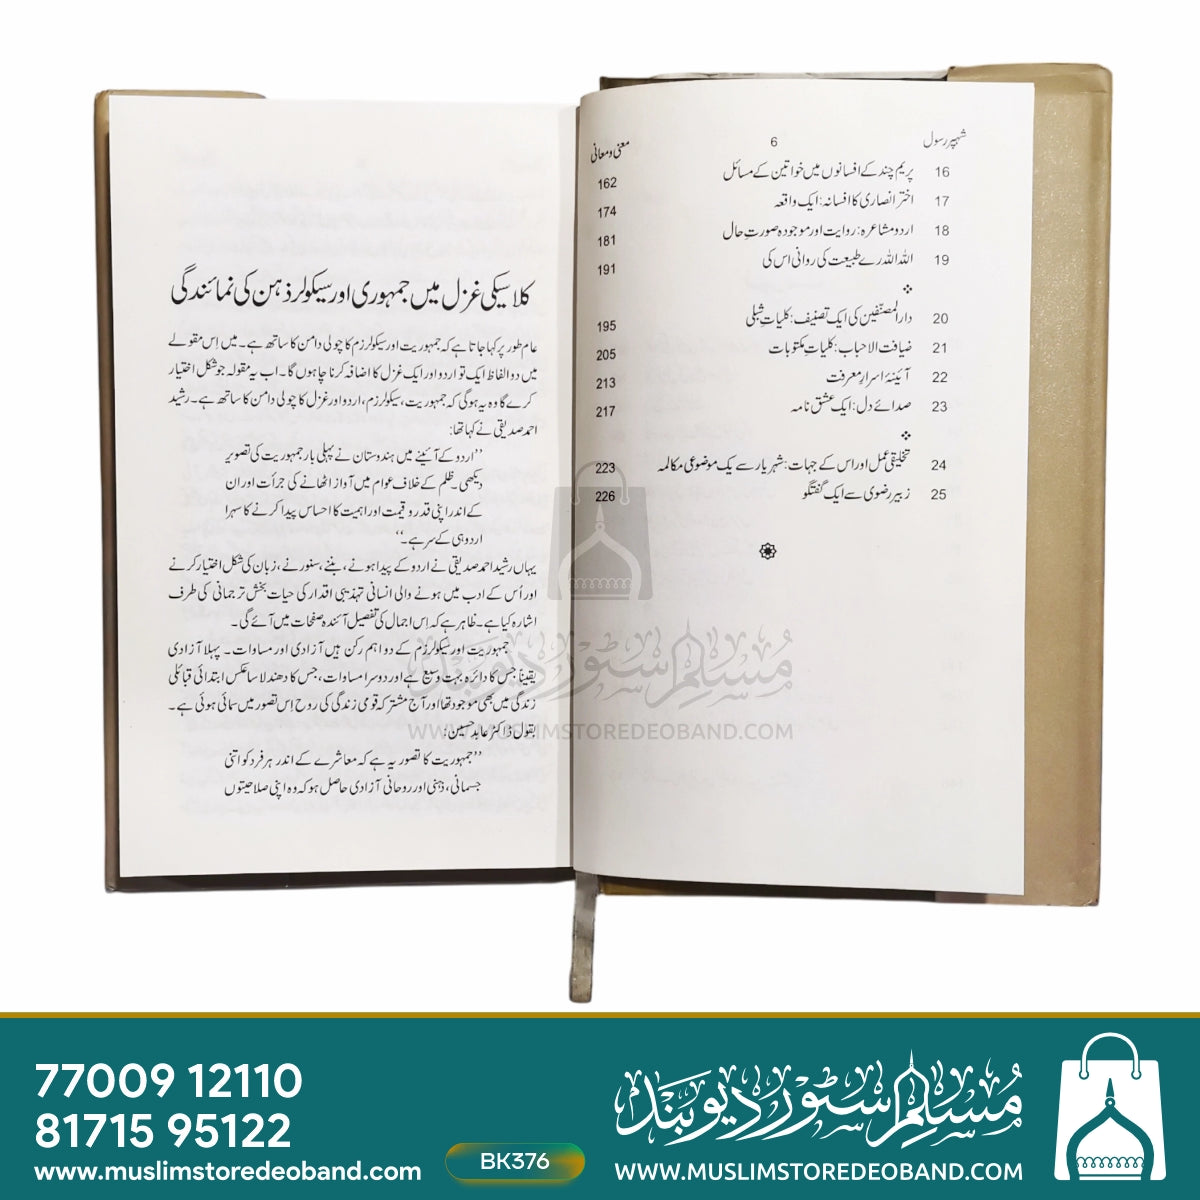 شہپر رسول 6 معنی و معانی
16 پریم چند کے افسانوں میں خواتین کے مسائل 162
17 اختر انصاری کا افسانہ: ایک واقعہ 174
18 اردو مشاعرہ: روایت اور موجودہ صورتِ حال 181
19 اللہ اللہ رے طبیعت کی روانی اس کی 191
20 دارالمصنفین کی ایک تصنیف: کلیاتِ شبلی 195
21 ضیافت الاحباب: کلیاتِ مکتوبات 205
22 آئینۂ اسرارِ معرفت 213
23 صدائے دل: ایک عشق نامہ 217
24 تخلیقی عمل اور اس کے جہات: شہریار سے یک موضوعی مکالمہ 223
25 زبیر رضوی سے ایک گفتگو 226
کلاسیکی غزل میں جمہوری اور سیکولر ذہن کی نمائندگی
عام طور پر کہا جاتا ہے کہ جمہوریت اور سیکولرزم کا چولی دامن کا ساتھ ہے۔ میں اِس مقولے
میں دو الفاظ ایک تو اردو اور ایک غزل کا اضافہ کرنا چاہوں گا۔ اب یہ مقولہ جو شکل اختیار
کرے گا وہ یہ ہوگی کہ جمہوریت، سیکولرزم، اردو اور غزل کا چولی دامن کا ساتھ ہے۔ رشید
احمد صدیقی نے کہا تھا:
’’اردو کے آئینے میں ہندوستان نے پہلی بار جمہوریت کی تصویر
دیکھی۔ ظلم کے خلاف عوام میں آواز اٹھانے کی جرأت اور ان
کے اندر اپنی قدر و قیمت اور اہمیت کا احساس پیدا کرنے کا سہرا
اردو ہی کے سر ہے۔‘‘
یہاں رشید احمد صدیقی نے اردو کے پیدا ہونے، بننے، سنورنے، زبان کی شکل اختیار کرنے
اور اُس کے ادب میں ہونے والی انسانی تہذیبی اقدار کی حیات بخش ترجمانی کی طرف
اشارہ کیا ہے۔ ظاہر ہے کہ اِس اجمال کی تفصیل آئندہ صفحات میں آئے گی۔
جمہوریت اور سیکولرزم کے دو اہم رکن ہیں آزادی اور مساوات۔ پہلا آزادی
یقیناً جس کا دائرہ بہت وسیع ہے اور دوسرا مساوات، جس کا دھندلا سا عکس ابتدائی قبائلی
زندگی میں بھی موجود تھا اور آج مشترکہ قومی زندگی کی روح اِس تصور میں سمائی ہوئی ہے۔
بقول ڈاکٹر عابد حسین:
’’جمہوریت کا تصور یہ ہے کہ معاشرے کے اندر ہر فرد کو اتنی
جسمانی، ذہنی اور روحانی آزادی حاصل ہو کہ وہ اپنی صلاحیتوں
مسلم سٹور دیوبند
WWW.MUSLIMSTOREDEOBAND.COM
77009 12110
81715 95122
www.muslimstoredeoband.com
BK376
مسلم سٹور دیوبند
WWW.MUSLIMSTOREDEOBAND.COM